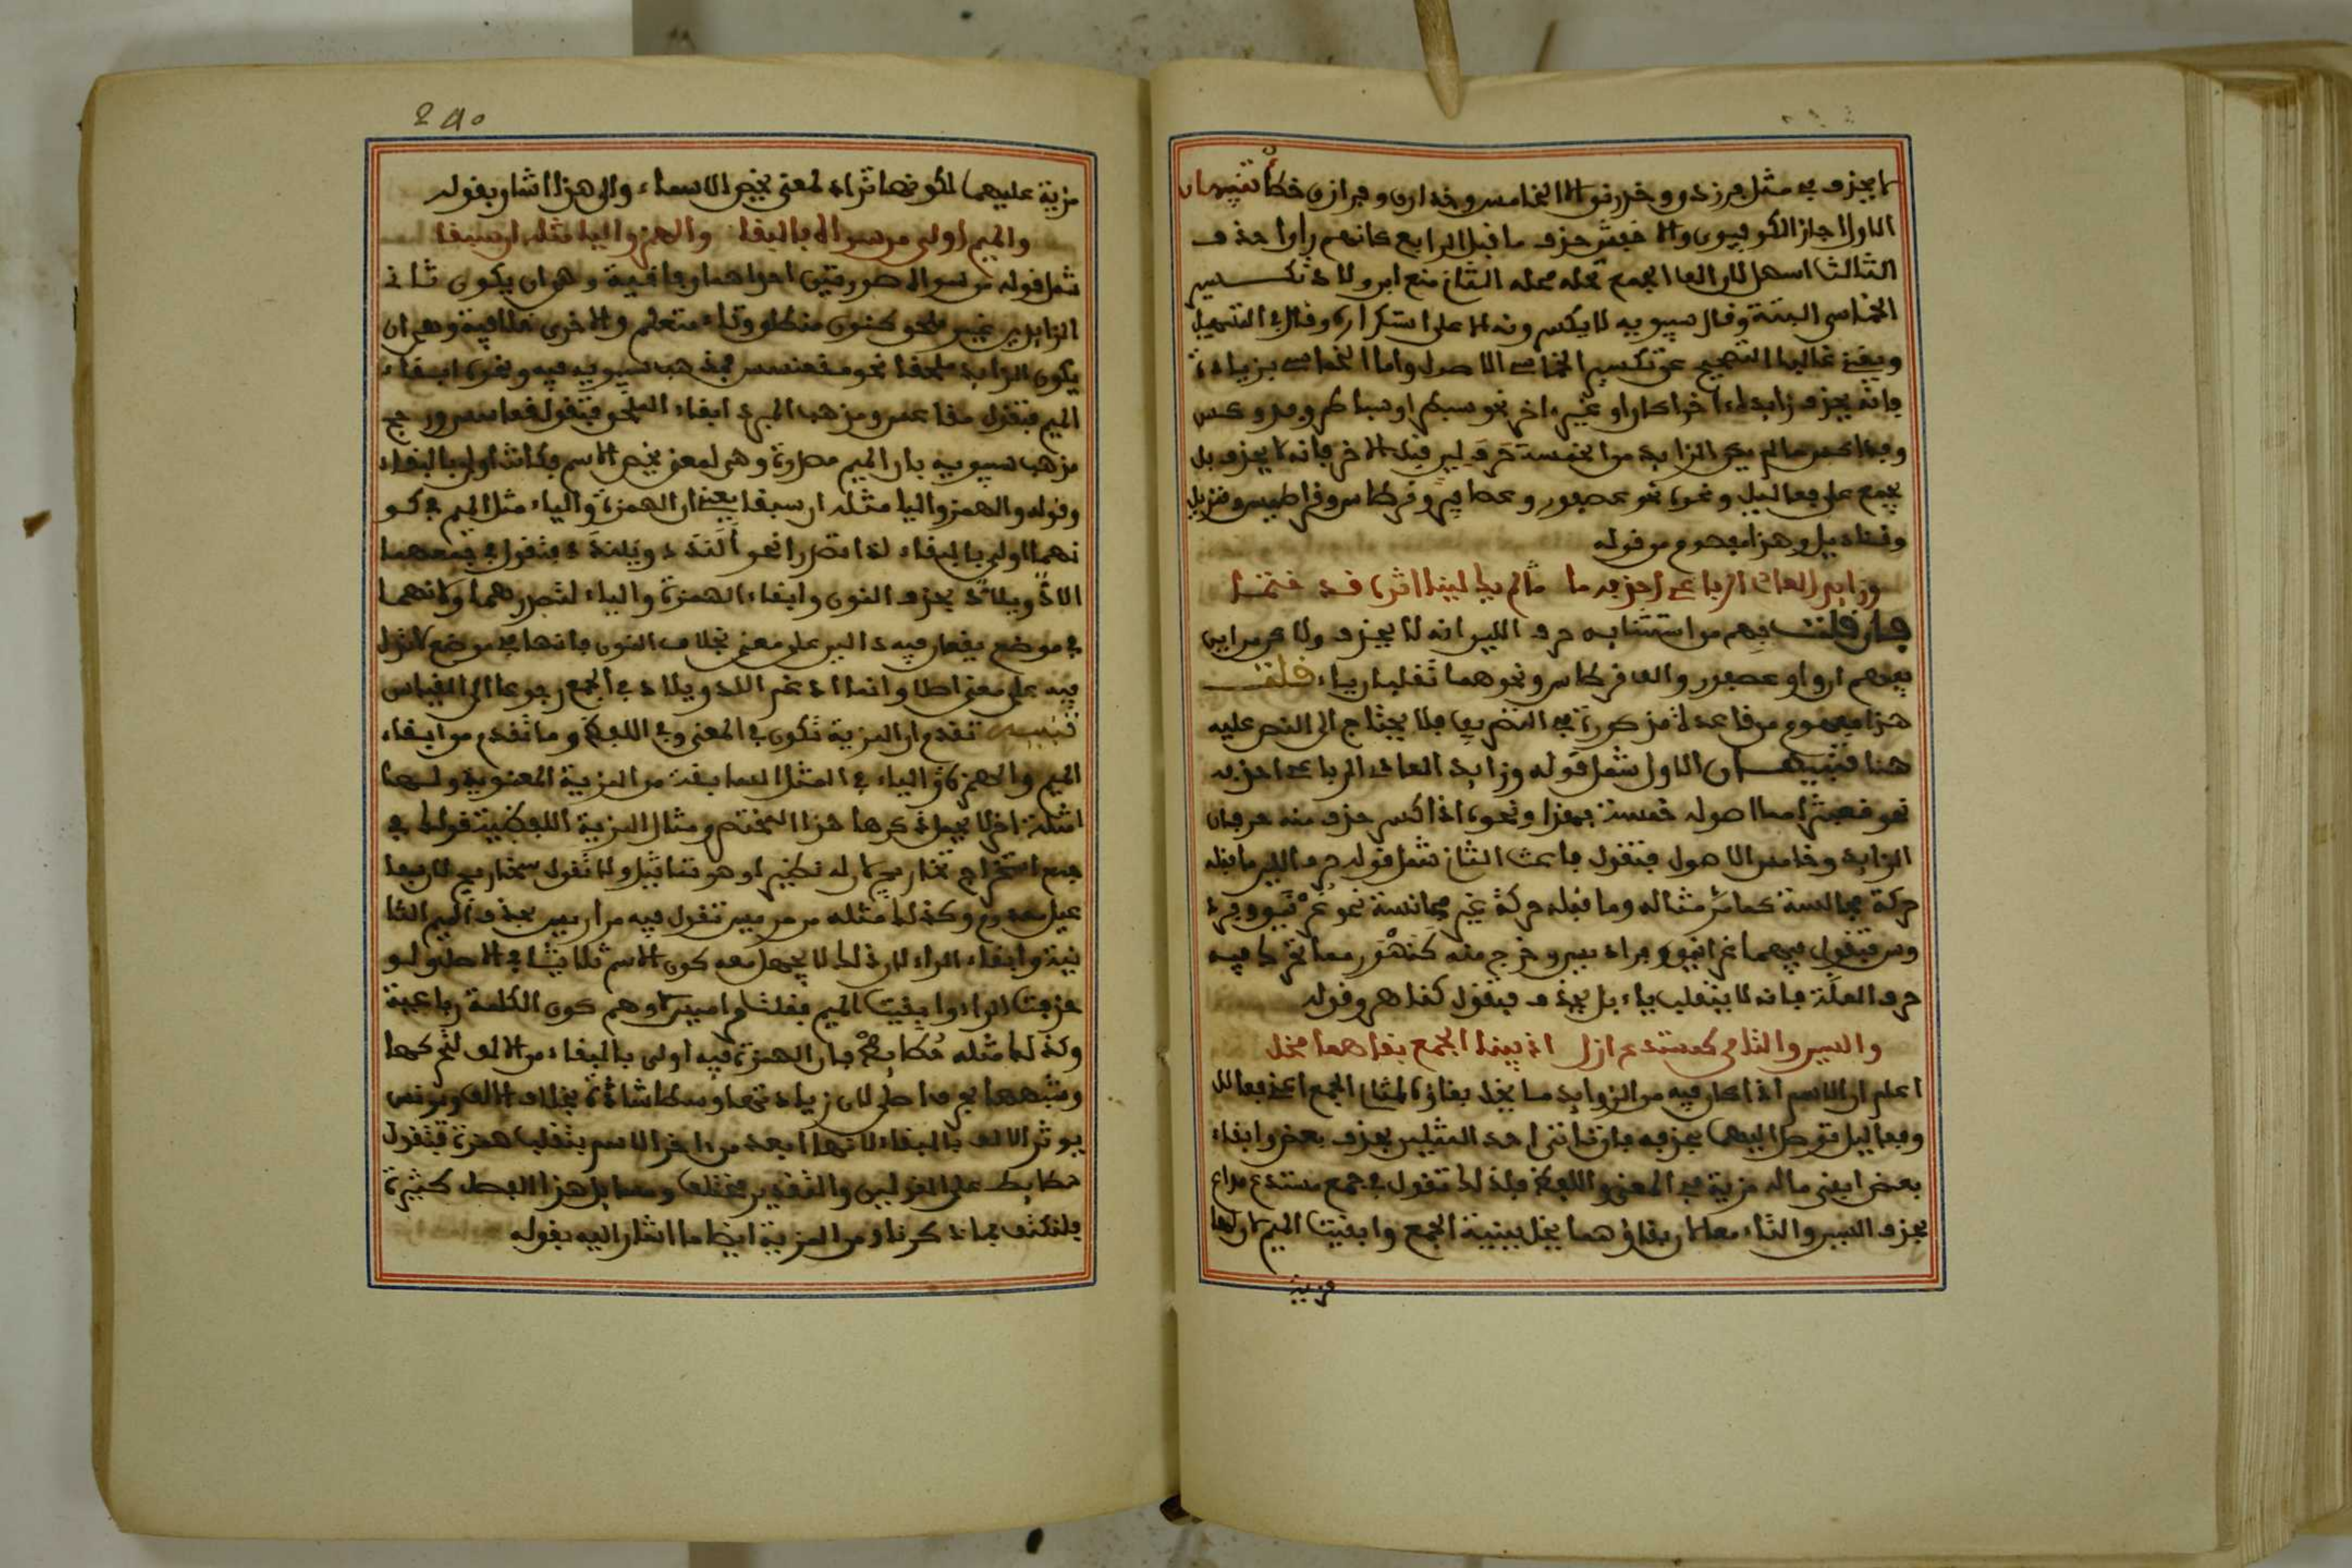 لا يحذف في مثل فرزدق وخدرنق الا الخامس وخدارن وفرازق خطأ تنبيهان
الاول اجاز الكوفيون والاخفش حذف ما قبل الرابع كانهم راوا حذف
الثالث اسهل لان الف الجمع تحله محله الثاني منع ابن ولاد تكسير
الخماسي البتة وقال سيبويه لا يكسرونه الا على استكراه وقال في التسهيل
ويغني غالبا التصحيح عن تكسير الخماسي الاصول واما الخماسي بزيادة
فانه يحذف زايده اخرا كان او غير اخر نحو سبطر او سباطر وفدوكس
وفداكس ما لم يكن الزايد من الخمسة حرف لين قبل الاخر فانه لا يحذف بل
يجمع على فعاليل ونحوه نحو عصفور وعصافير وقرطاس وقراطيس وقنديل
وقناديل وهذا مفهوم من قوله
وزايد العادي الرباعي احذفه ما ما لم يك لينا اثره اللذ ختما
فان قلت فهم من استثنايه حرف اللين انه لا يحذف ولاكن من اين
يفهم ان واو عصفور والف قرطاس ونحوهما تقلبان ياء قلت
هذا مفهوم من قاعدة مذكورة في التصريف فلا يحتاج الى النص عليه
هنا تنبيهان الاول شمل قوله وزايد العادي الرباعي احذفه
نحو قبعثرا مما اصوله خمسة فهذا ونحوه اذا كسر حذف منه حرفان
الزايد وخامس الاصول فتقول قباعث الثاني شمل قوله حرف اللين ما قبله
حركة مجانسة كما مر مثاله وما قبله حركة غير مجانسة نحو غرنيق وفرد
وس فتقول فيهما غرانيق وفراديس وخرج منه كنهور مما تحرك فيه
حرف العلة فانه لا يقلب ياء بل يحذف فتقول كناهر وقوله
والسين والتا من كمستدع ازل اذ ببنا الجمع بقاهما مخل
اعلم ان الاسم اذا كان فيه من الزوايد ما يخل بقاؤه بمثال الجمع اعني فعالل
وفعاليل توصل اليهما بحذفه فان تاتى احد المثلين بحذف بعض وابقاء
بعض ابقي ماله مزية في المعنى واللفظ فلذلك تقول في جمع مستدع مداع
بحذف السين والتاء معا لان بقاؤهما يخل ببنية الجمع وابقيت الميم لان لها
مزية
240
مزية عليهما لكونها تزاد لمعنى يخص الاسماء والى هذا اشار بقوله
والميم اولى من سواه بالبقا والهمز واليا مثله ان سبقا
شمل قوله من سواه صورتين احداهما وفاقية وهي ان يكون ثاني
الزايدين غير ملحق كنون منطلق وتاء متعلم والاخرى خلافية وهي ان
يكون الزايد ملحقا نحو مقعنسس فمذهب سيبويه فيه ونحوه ابقاء
الميم فتقول مقاعس ومذهب المبرد ابقاء الملحق فتقول قعاسس ورجح
مذهب سيبويه بان الميم مصدرة وهي لمعنى يخص الاسم فكانت اولى بالبقاء
وقوله والهمز واليا مثله ان سبقا يعني ان الهمزة والياء مثل الميم في كو
نهما اولى بالبقاء اذا تصدرا نحو ألندد ويلندد فتقول في جمعهما
الادّ ويلادّ بحذف النون وابقاء الهمزة والياء لتصدرهما ولانهما
في موضع يقعان فيه دالين على معنى بخلاف النون فانها في موضع لا تدل
فيه على معنى اصلا وانما ادغم الاد ويلاد في الجمع رجوعا الى القياس
تنبيه تقدم ان المزية تكون في المعنى وفي اللفظ وما تقدم من ابقاء
الميم والهمزة والياء في المثل السابقة من المزية المعنوية ولهما
امثلة اخر لا يحمل ذكرها هذا المختصر ومثال المزية اللفظية قولك في
جمع استخراج تخاريج لان له نظيرا وهو تماثيل ولا تقول سخاريج لان سفا
عيل معدوم وكذلك مثله مرمريس تقول فيه مراريس بحذف الميم الثا
نية وابقاء الراء لان ذلك لا يجهل معه كون الاسم ثلاثيا في الاصل ولو
حذفت الراء وابقيت الميم فقلت مراميس لاوهم كون الكلمة رباعية
وكذلك مثله حطايط فان الهمزة فيه اولى بالبقاء من الالف لتحركها
وشبهها بحرف اصلي لان زيادتها وسطا شاذة بخلاف الالف ويونس
يوثر الالف بالبقاء لانها ابعد من اخر الاسم فتقلب همزة فتقول
حطايط على القولين والتقدير مختلف ومسايل هذا الفصل كثيرة
فلنكتف بما ذكرناه ومن المزية ايضا ما اشار اليه بقوله